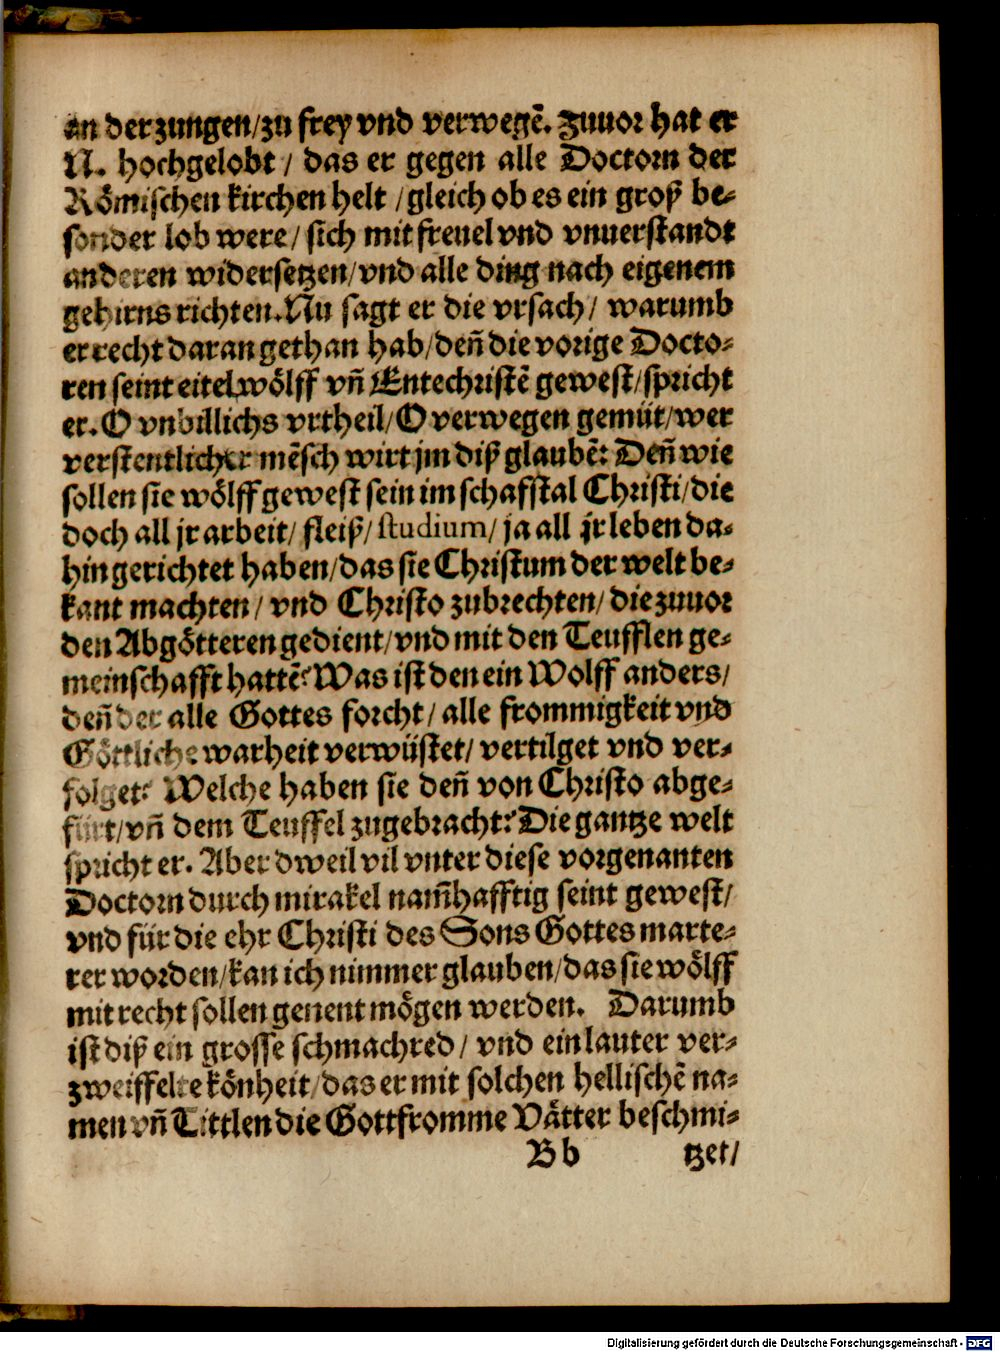 an der zungen/zu frey vnd verwegẽ. Zuuor hat er
N. hochgelobt / das er gegen alle Doctorn der
Römischen kirchen helt / gleich ob es ein groß be⸗
sonder lob were/ sich mit freuel vnd vnuerstandt
anderen widersetzen/vnd alle ding nach eigenem
gehirns richten. Nu sagt er die vrsach/ warumb
er recht daran gethan hab/deñ die vorige Docto⸗
ren seint eitel wölff vñ Entechristẽ gewest/spricht
er. O vnbillichs vrtheil/O verwegen gemüt/wer
verstentlicher mẽsch wirt jm diß glaubẽ? Deñ wie
sollen sie wölff gewest sein im schafstal Christi/die
doch all jr arbeit/ fleiß/ studium/ ja all jr leben da⸗
hin gerichtet haben/das sie Christum der welt be⸗
kant machten/ vnd Christo zubrechten/ die zuuor
den Abgötteren gedient/vnd mit den Teufflen ge⸗
meinschafft hattẽ? Was ist den ein Wolff anders/
deñ der alle Gottes forcht/ alle frommigkeit vnd
Göttliche warheit verwüstet/ vertilget vnd ver⸗
folget? Welche haben sie deñ von Christo abge⸗
fürt/vñ dem Teuffel zugebracht? Die gantze welt
spricht er. Aber dweil vil vnter diese vorgenanten
Doctorn durch mirakel nam̃hafftig seint gewest/
vnd für die ehr Christi des Sons Gottes marte⸗
rer worden/kan ich nimmer glauben/das sie wölff
mit recht sollen genent mögen werden. Darumb
ist diß ein grosse schmachred/ vnd ein lauter ver⸗
zweiffelte könheit/das er mit solchen hellischẽ na⸗
men vñ Tittlen die Gottfromme Vätter beschmi⸗
Bb tzet/
Digitalisierung gefördert durch die Deutsche Forschungsgemeinschaft - DFG